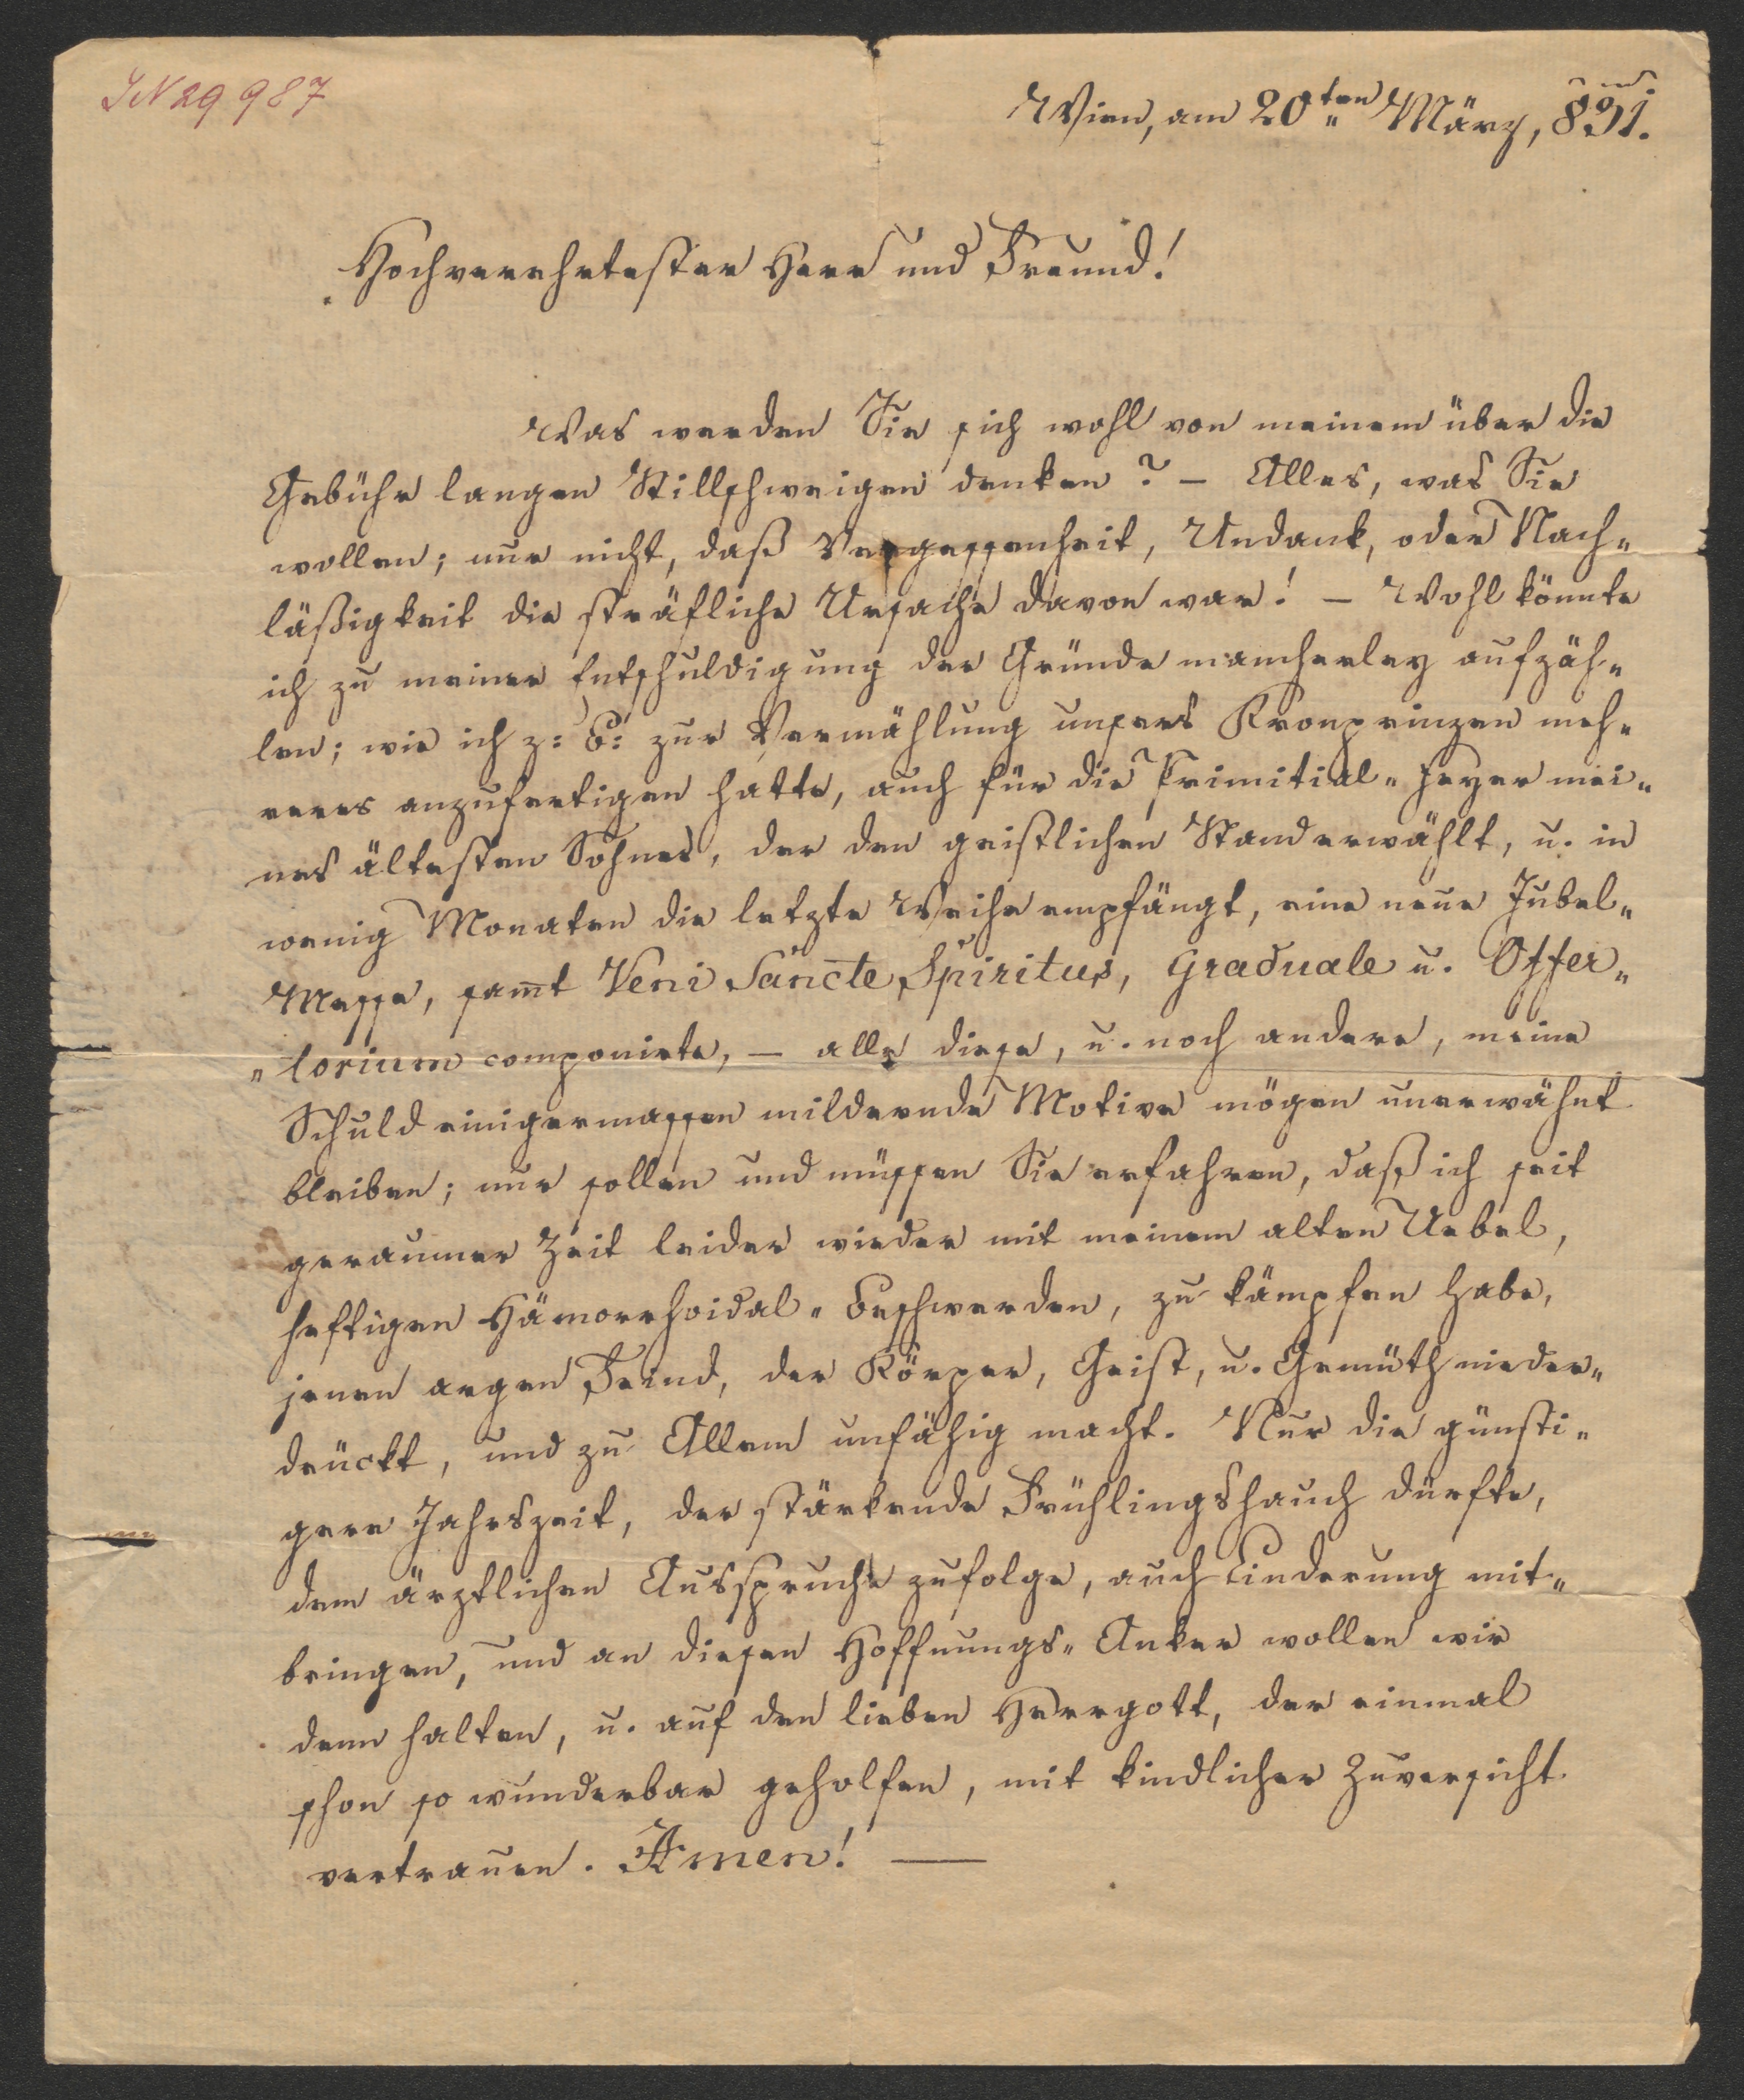 IN 29 987
Wien, am 20ten März, 831.
Hochverehrtester Herr und Freund!
Was werden Sie sich wohl von meinem über die
Gebühr langen Stillschweigen denken? – Alles, was Sie
wollen; nur nicht, daß Vergessenheit, Undank, oder Nach„
läßigkeit die sträfliche Ursache davon war! – Wohl könnte
ich zu meiner Entschuldigung der Gründe mancherley aufzäh„
len; wie ich z: B: zur Vermählung unsers Kronprinzen meh„
reres anzufertigen hatte, auch für die Primitial„Feyer mei„
nes ältesten Sohnes, der den geistlichen Stand erwählt, u. in
wenig Monaten die letzte Weihe empfängt, eine neue Jubel„
Messe, sam̄t Veni Sancte Spiritus, Graduale u. Offer„
„torium componirte, – alle diese, u. noch andere, meine
Schuld einigermassen mildernde Motive mögen unerwähnt
bleiben; nur sollen und müssen Sie erfahren, daß ich seit
geraumer Zeit leider wieder mit meinem alten Uebel,
heftigen Hämorrhoidal„Beschwerden, zu kämpfen habe,
jenen argen Feind, der Körper, Geist, u. Gemüth nieder„
drückt, und zu Allem unfähig macht. Nur die günsti„
gere Jahrszeit, der stärkende Frühlingshauch dürfte,
dem ärztlichen Ausspruche zufolge, auch Linderung mit„
bringen, und an diesen Hoffnungs„Anker wollen wir
denn halten, u. auf den lieben Herrgott, der einmal
schon so wunderbar geholfen, mit kindlicher Zuversicht
vertrauen. Amen! —